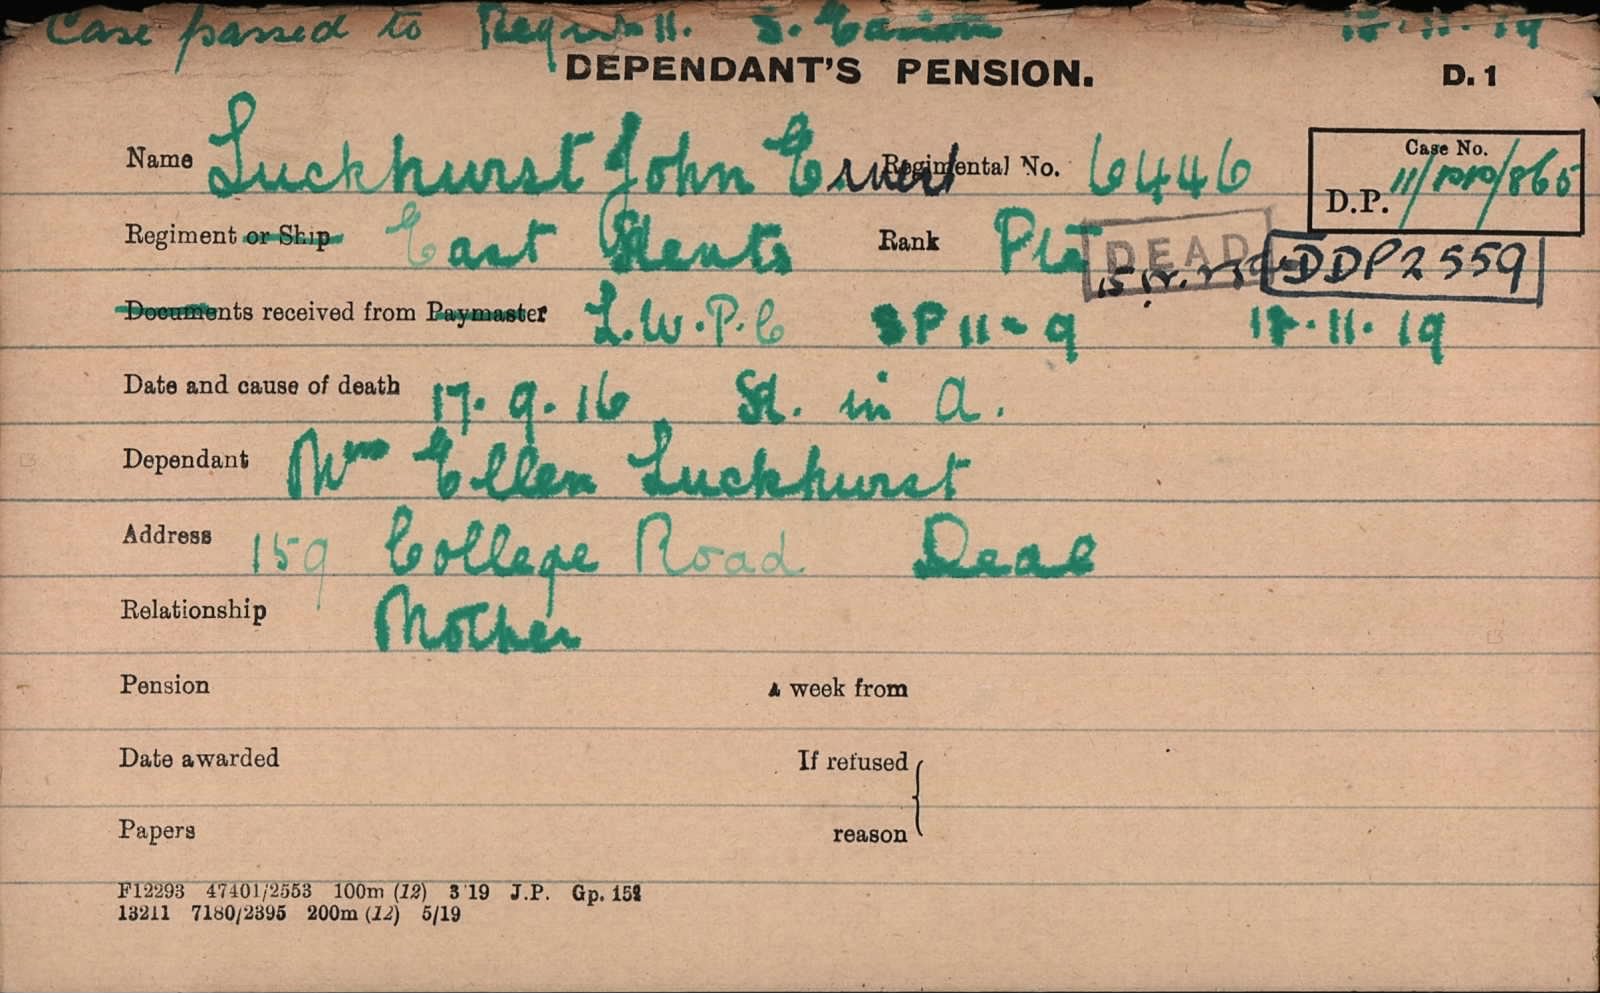 Case passed to Region 11. S. Eastern 18.11.19
DEPENDANT'S PENSION. D. 1
Name Luckhurst John Ernest Regimental No. 6446 Case No.
D.P. 11/ /865
Regiment or Ship East Kents Rank Pte DEAD DDP2559
Documents received from Paymaster L.W.P.C SP 11-9 18.11.19
Date and cause of death 17.9.16 K. in A.
Dependant Mrs Ellen Luckhurst
Address 159 College Road Deal
Relationship Mother
Pension A week from
Date awarded If refused
Papers reason
F12293 47401/2553 100m (12) 3'19 J.P. Gp. 152
13211 7180/2395 200m (12) 5/19